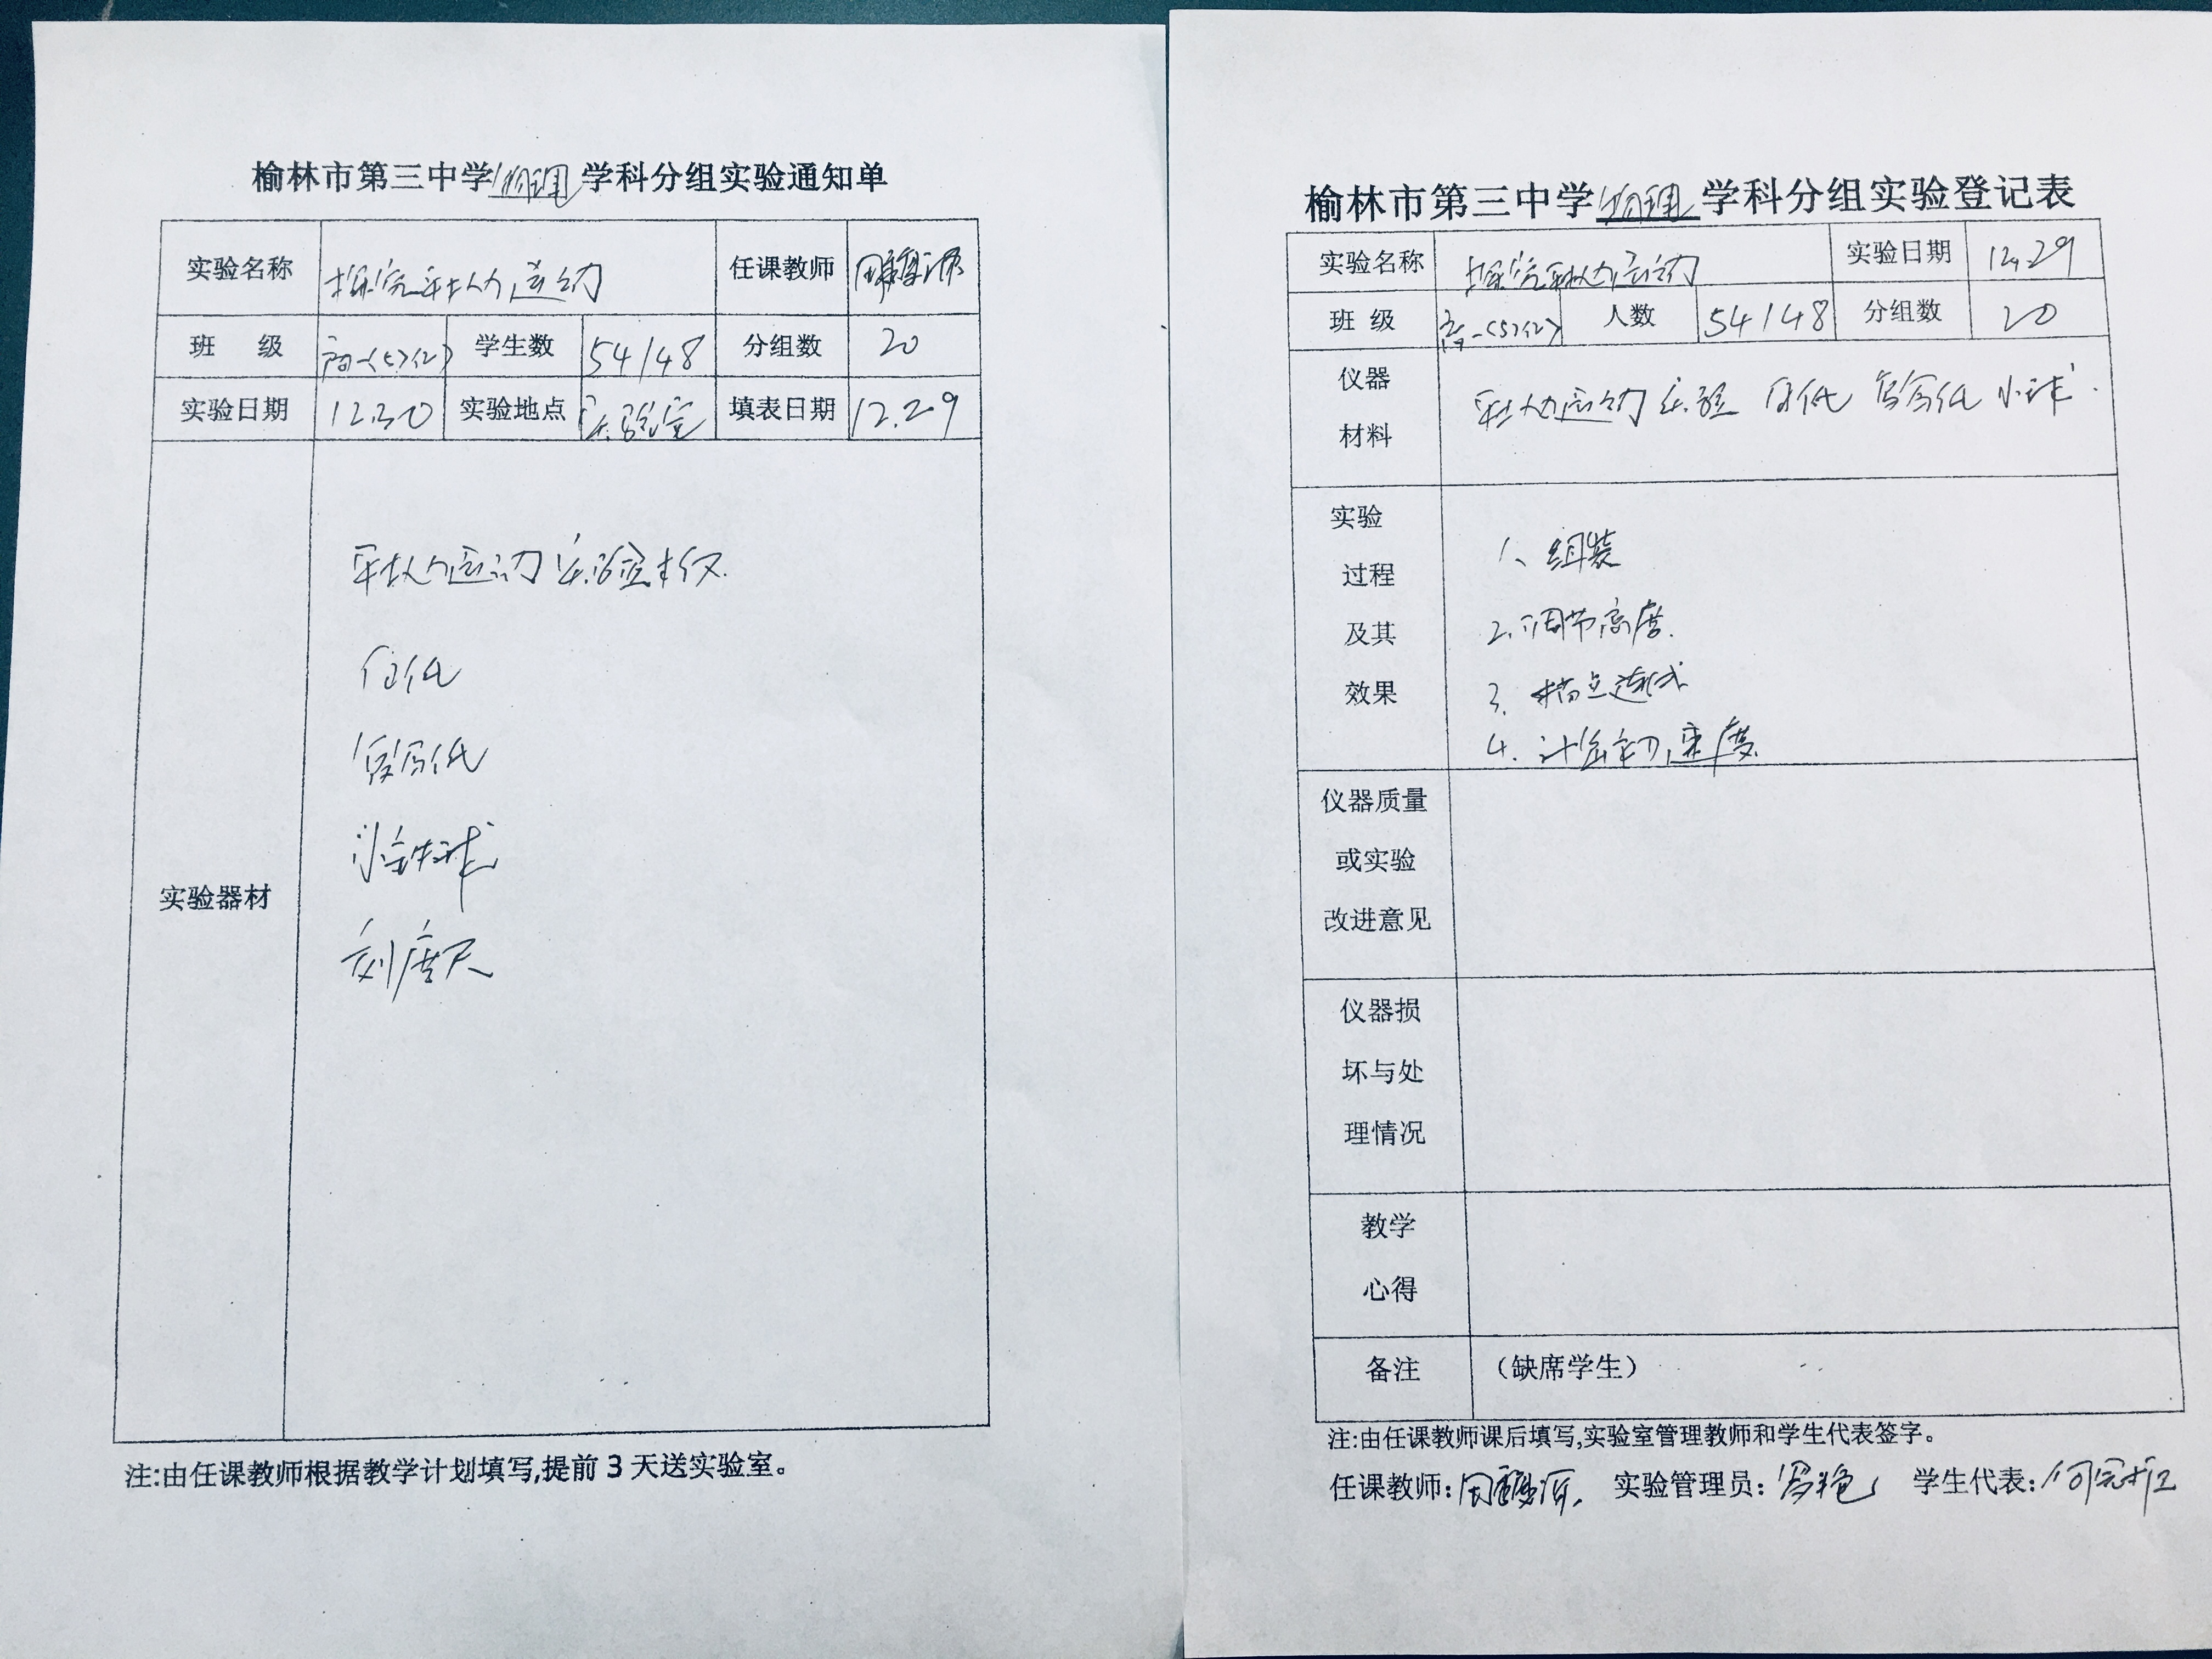 榆林市第三中学物理学科分组实验通知单
实验名称 探究平抛运动 任课教师
班 级 高一<5><2> 学生数 54/48 分组数 20
实验日期 12.30 实验地点 实验室 填表日期 12.29
实验器材
平抛运动实验仪.
白纸
复写纸
小铁球
刻度尺
注:由任课教师根据教学计划填写,提前3天送实验室。
榆林市第三中学物理学科分组实验登记表
实验名称 探究平抛运动 实验日期 12.29
班 级 高一<5><2> 人数 54/48 分组数 20
仪器材料 平抛运动实验 白纸 复写纸 小球.
实验过程及其效果
1、组装
2.调节高度.
3.描点连线
4.计算初速度.
仪器质量或实验改进意见
仪器损坏与处理情况
教学心得
备注 （缺席学生）
注:由任课教师课后填写,实验室管理教师和学生代表签字。
任课教师: 实验管理员: 学生代表: